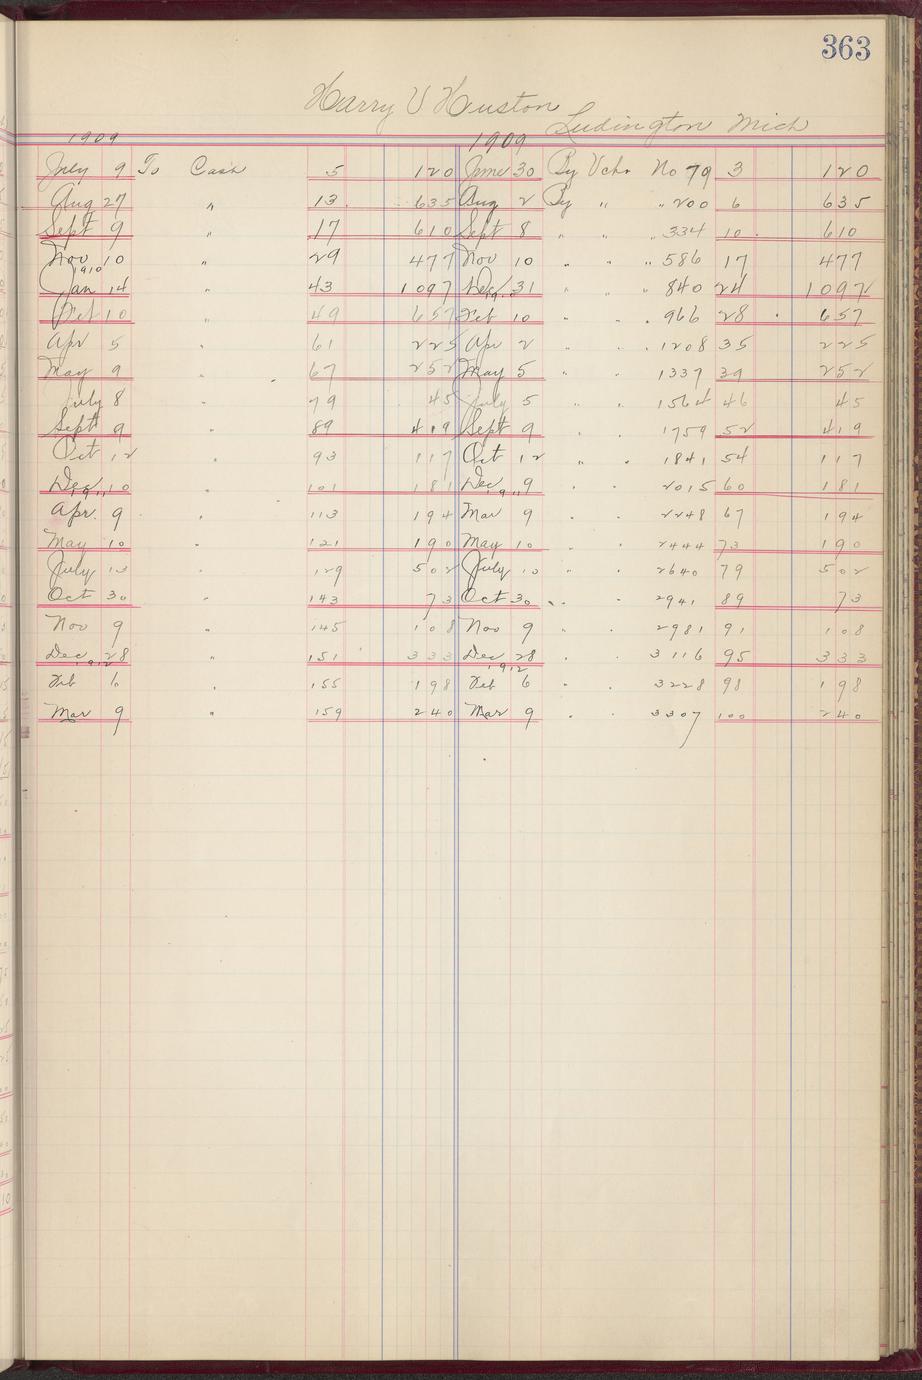 363
Harry V Huston
Ludington Mich
1909 1909
July 9 To Cash 5 120 June 30 By Vchr No 79 3 120
Aug 27 " 13 635 Aug 2 By " " 200 6 635
Sept 9 " 17 610 Sept 8 " " " 334 10 610
Nov 10 " 29 477 Nov 10 " " " 586 17 477
1910
Jan 14 " 43 1097 Dec 31 " " " 840 24 1097
1910
Feb 10 " 49 657 Feb 10 " " 966 28 657
Apr 5 " 61 225 Apr 2 " " 1208 35 225
May 9 " 67 252 May 5 " " 1337 39 252
July 8 " 79 45 July 5 " " 1564 46 45
Sept 9 " 89 419 Sept 9 " " 1759 52 419
Oct 12 " 93 117 Oct 12 " " 1841 54 117
Dec 10 " 101 181 Dec 9 " " 2015 60 181
1911 1911
Apr. 9 " 113 194 Mar 9 " " 2248 67 194
May 10 " 121 190 May 10 " " 2444 73 190
July 13 " 129 502 July 10 " " 2640 79 502
Oct 30 " 143 73 Oct 30 " " 2941 89 73
Nov 9 " 145 108 Nov 9 " " 2981 91 108
Dec 28 " 151 333 Dec 28 " " 3116 95 333
1912 1912
Feb 6 " 155 198 Feb 6 " " 3228 98 198
Mar 9 " 159 240 Mar 9 " " 3307 100 240